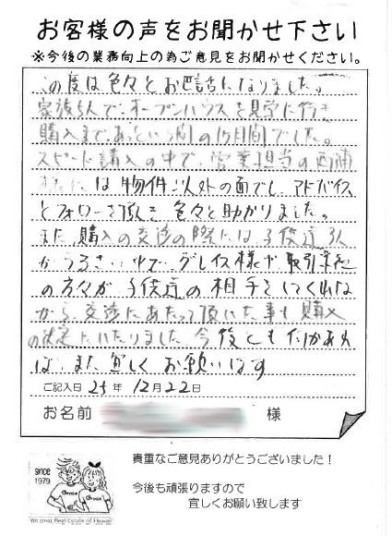 お客様の声をお聞かせ下さい
※今後の業務向上の為ご意見をお聞かせください。
この度は色々とお世話になりました。
家族5人でオープンハウスを見学に行き
購入まであっという間の1ヶ月間でした。
スピード購入の中で、営業担当の西浦
さんには物件以外の面でも、アドバイス
とフォローを頂き色々と助かりました。
また、購入の交渉の際には子供達3人
がうるさい中で、グレイス様や取引先
の方々が子供達の相手をしてくれな
がら、交渉にあたって頂いた事も購入
の決定にいたりました。今後とも
ば、また宜しくお願います
ご記入日 25年 12月22日
お名前 様
since
1979
貴重なご意見ありがとうございました!
今後も頑張りますので
宜しくお願い致します